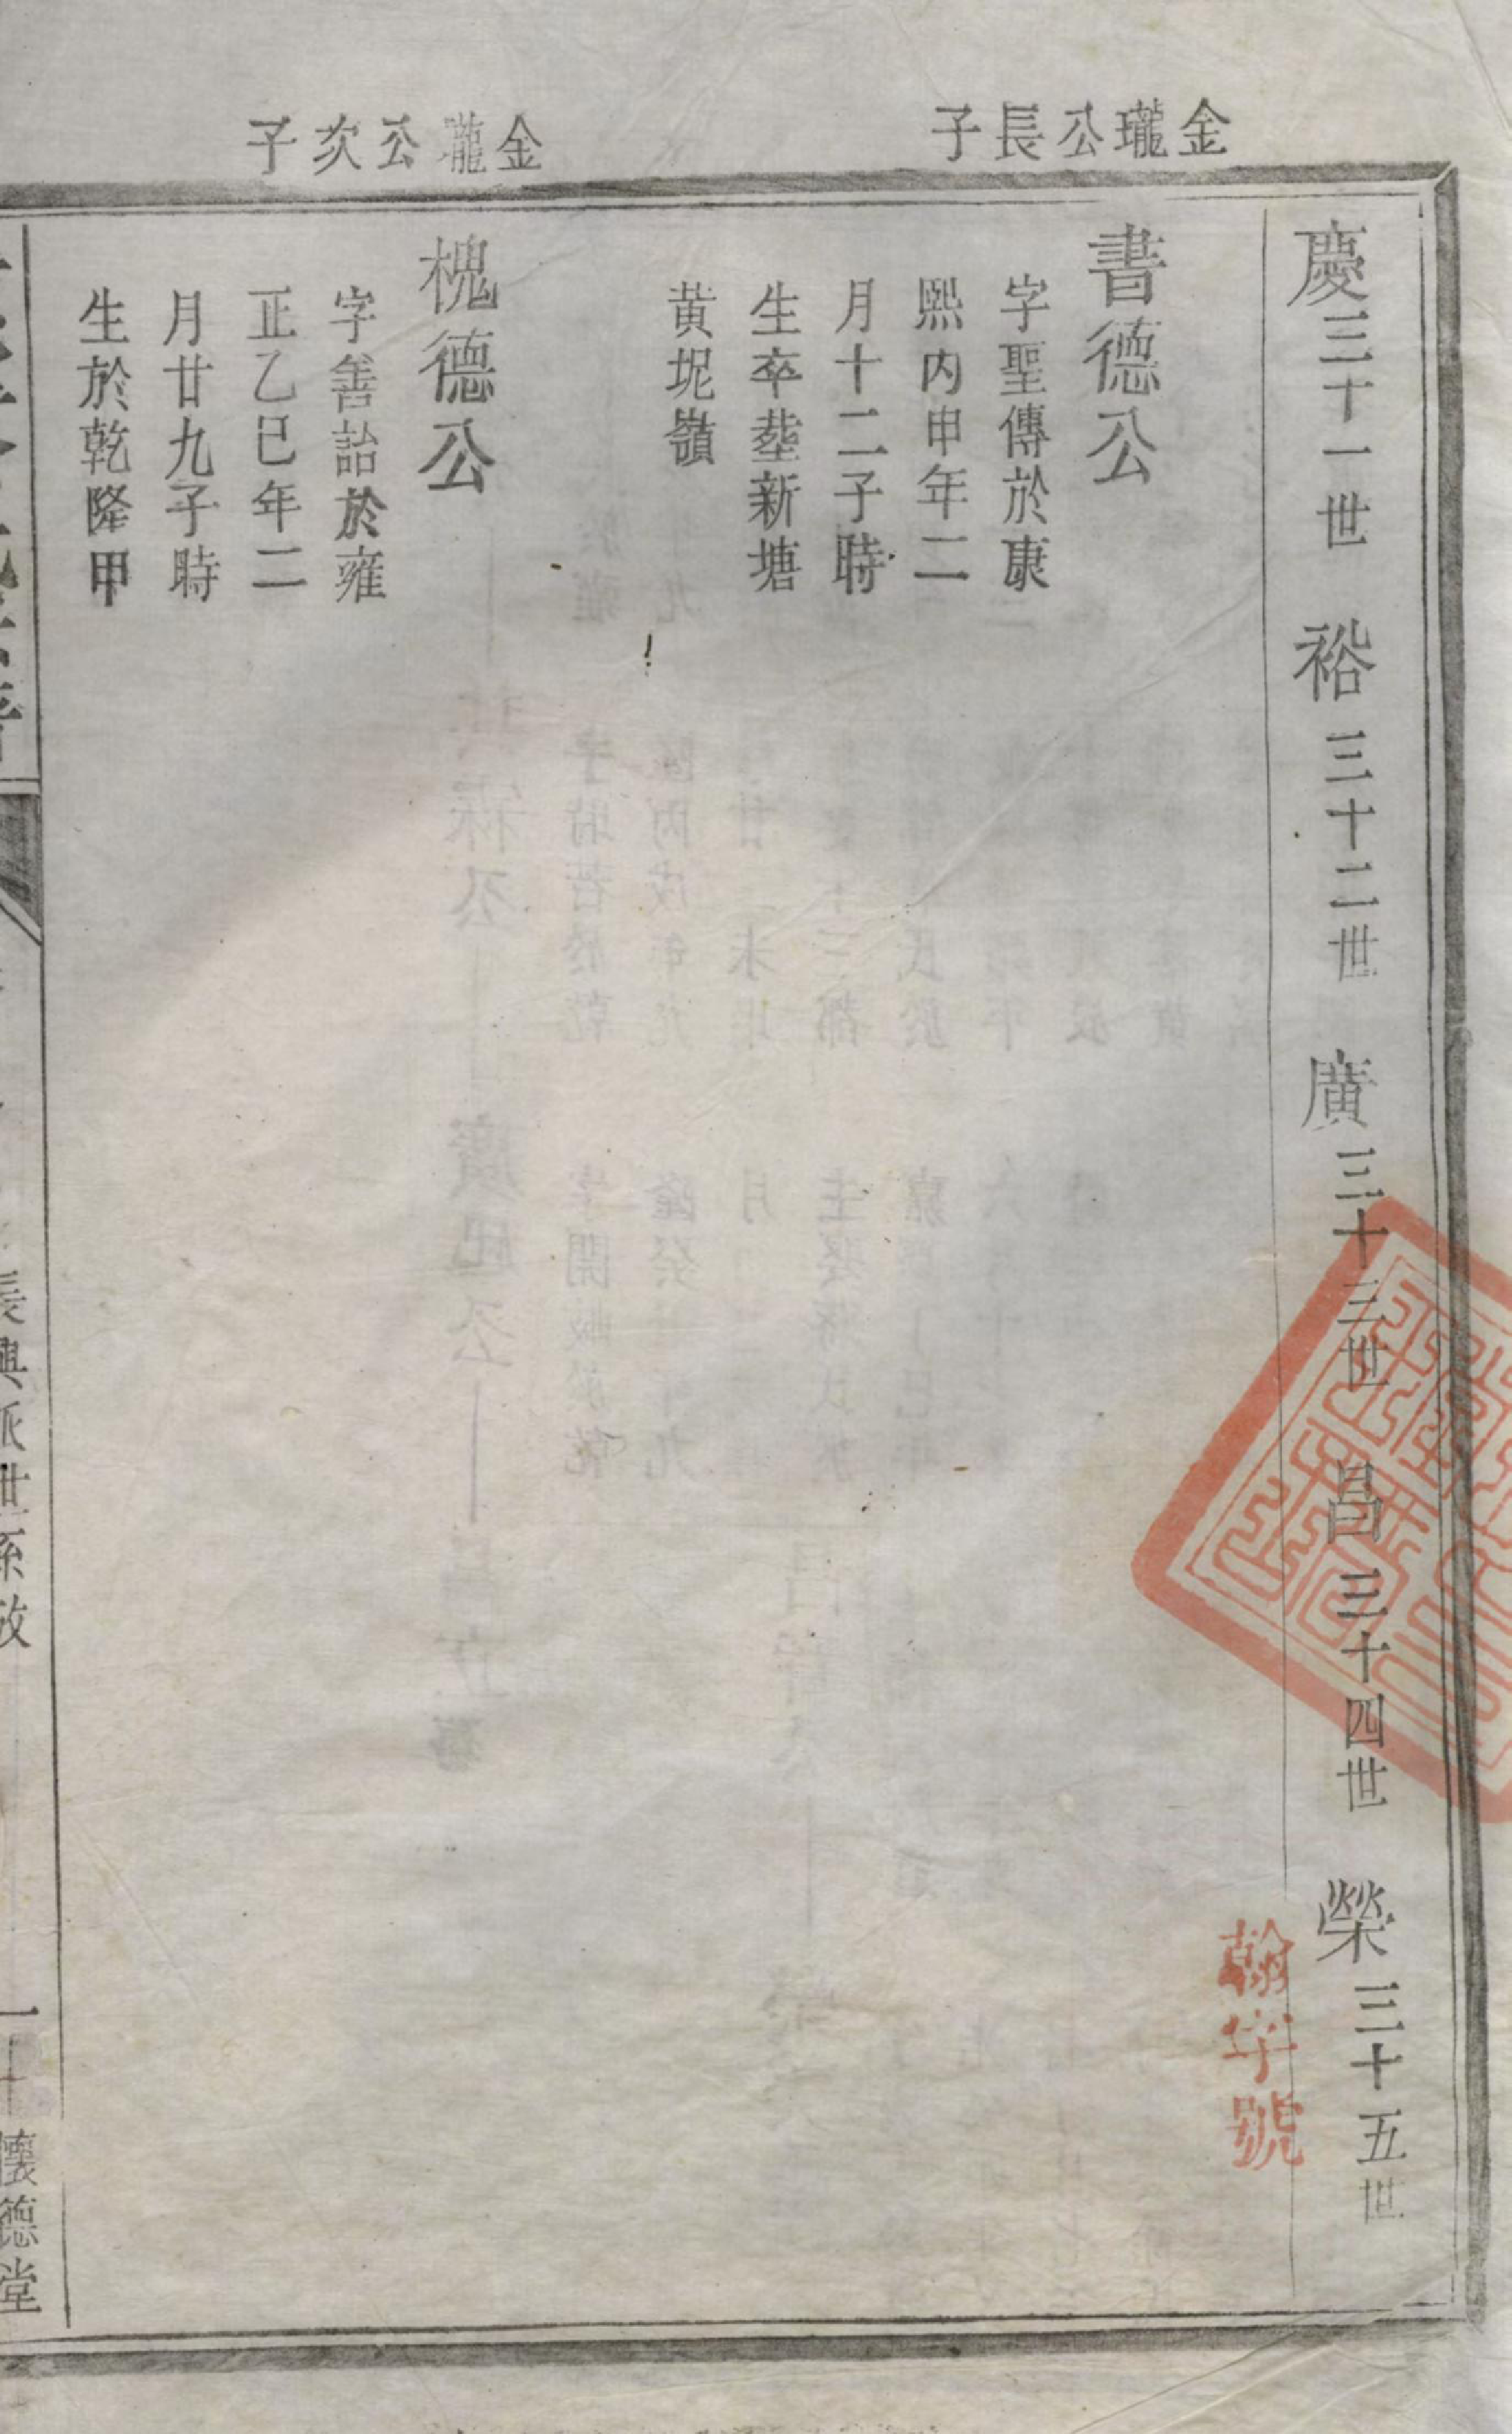 金瓏公長子
金瓏公次子
慶三十一世 裕三十二世 廣三十三世 昌三十四世 榮三十五世
翰字號
書德公
字聖傳於康
熙内申年二
月十二子時
生卒塟新塘
黄坭嶺
槐德公
字善詒於雍
正乙巳年二
月廿九子時
生於乾隆甲
長興派世系攷
二十
懷德堂